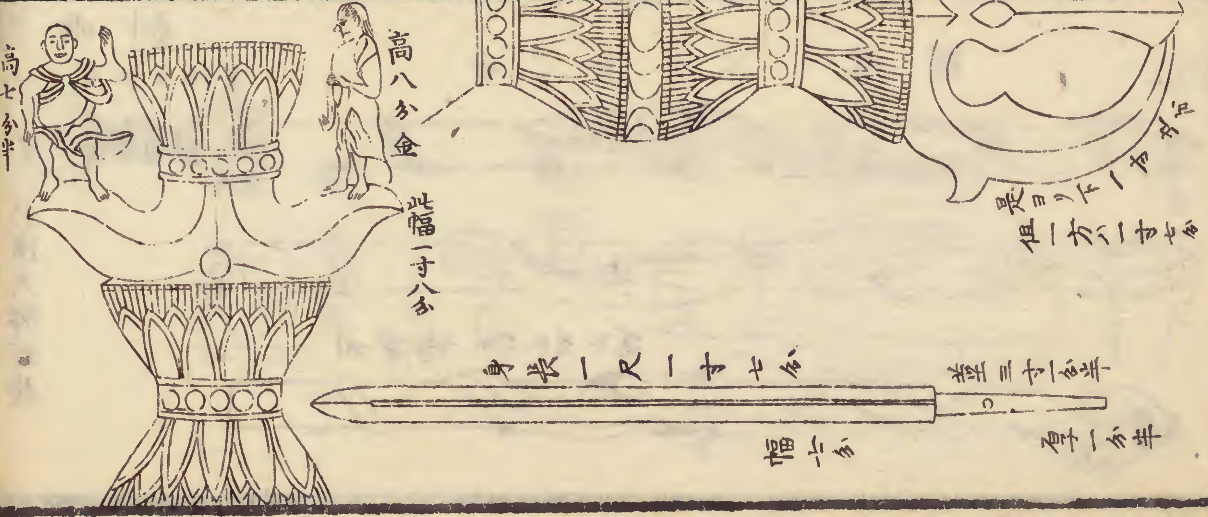 高七分半
高八分金
此幅一寸八分
是ヨリ下一方
但一方八一寸七分
身長一尺一寸七分
幅六分
莖三寸一分半
厚一分半